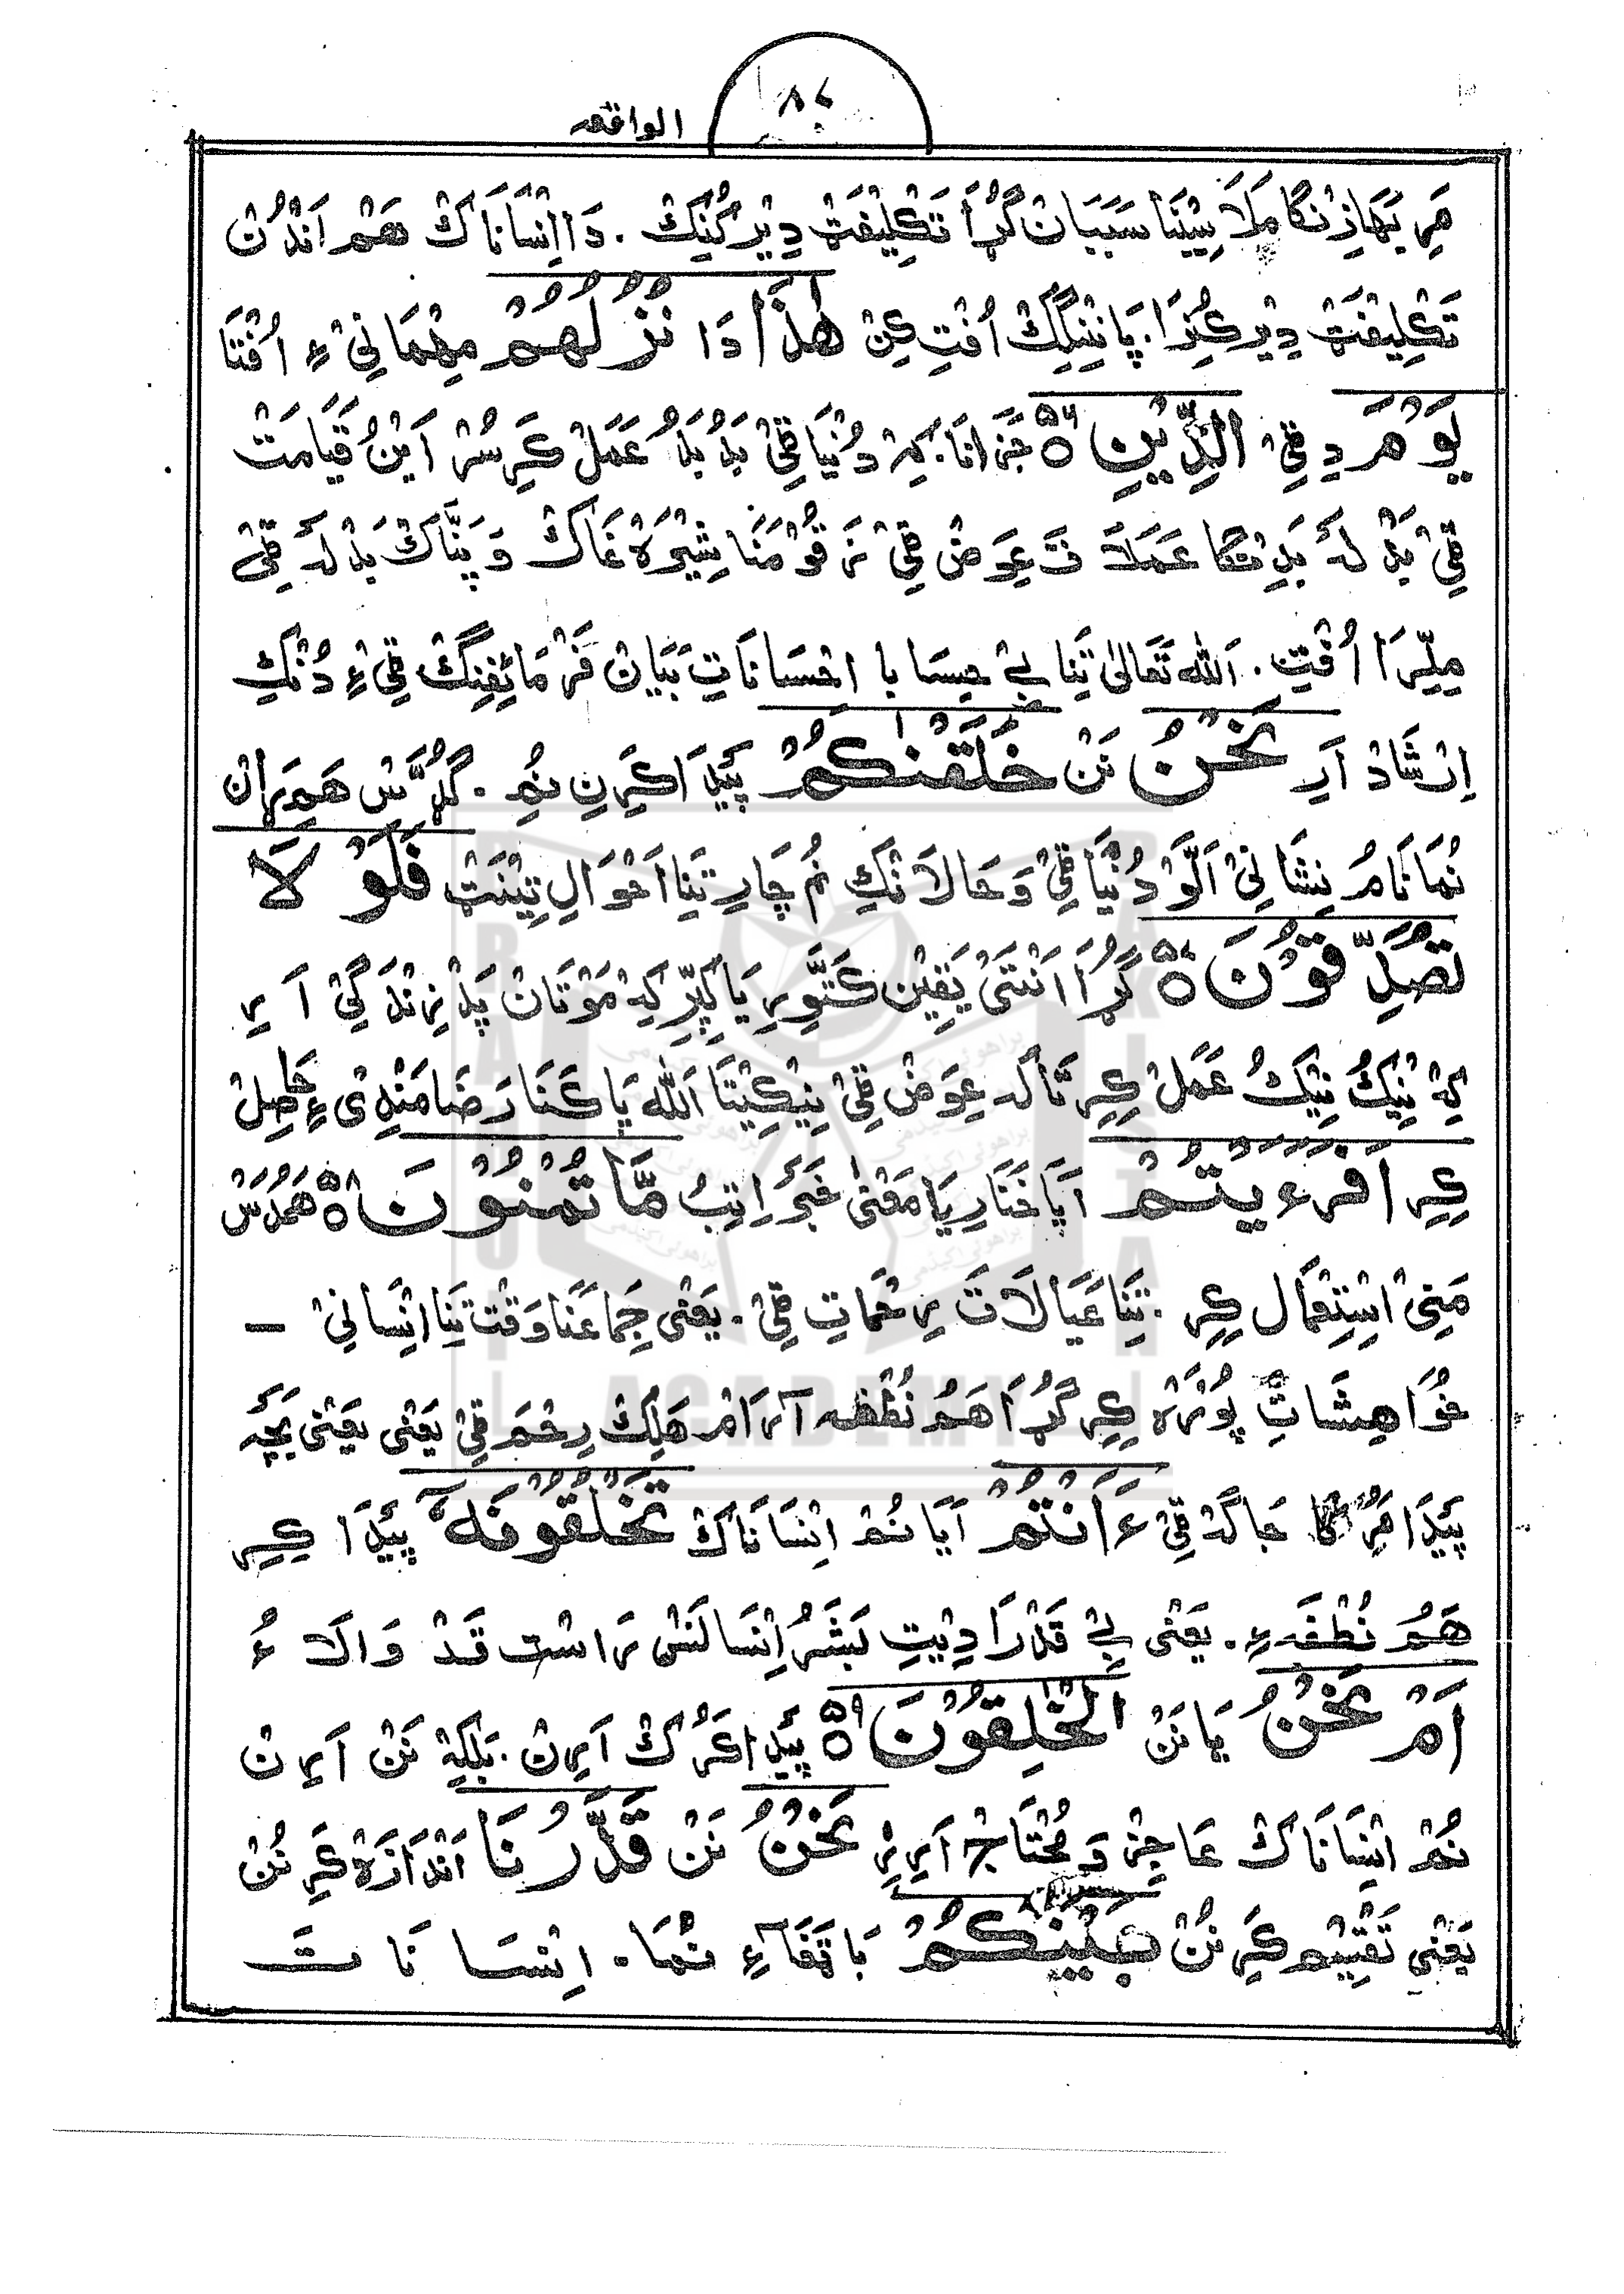 الواقعه ٨٧
مَرِ بَهَازِنگا مَلَا بِيْنَنَا سَبَبَان گُڑَا تَکْلِيْفَٹ دِيْر کُنِنْگ . دَا اِنْسَانَاکْ هَمْ اَنْدُنْ
تَکْلِيْفَٹ دِيْر کُنِرَا . پَانِنْگِکْ اُفْتِ کِنْ هٰذَا دَا نُزُلُهُمْ مِهْمَانِیْ ءِ اُفْتَا
يَوْمَ دِ ٹِیْ الدِّيْنِ ٥٦ جَزَانَا . کِہ دُنْيَا ٹِیْ بَدُ بَدُ عَمَلْ کَرِسُرْ اَيْنُ قِيَامَتْ
ٹِیْ بَدْلَہ بَدِ تٖکَا عَمَلَا تَ عِوَضْ ٹِیْ زَقُوْمَنَا شِيْرَهْ غَاکْ وَ پِنَّاکْ بَدْلَہ ٹِیْ
مِلِّرَا اُفْتِ . اَللّٰه تَعَالیٰ تَنَا بے حِسَابا اِحْسَانَاتِ بَيَانْ فَرْمَائِفِنْگْ ٹِیْ ءِ دُنْکِ
اِرْشَادْ اَرِ نَحْنُ نَنْ خَلَقْنٰکُمْ پَيْدَا کَرِنِ نُمِ . گُڈَّسْ هَمِرَانْ
نُمَا نَامُ نِشَانِیْ اَلَّوْ دُنْيَا ٹِیْ وَحَالَانْکِ نُم چَارِ تَنِا اَحْوَالِ تِيْنَٹ فَلَوْ لَا
تُصَدِّقُوْنَ ٥٧ گُڑَا اَنْتَئَ يَقِيْن کَتَّوِرِ يَاکِرِّ کِہ مَوْتَان پَدْ زِنْدَگِیْ اَرِ
کِہ نِيْکُ نِيْکُ عَمَلْ کِرِ تَاکہ عِوَضْ ٹِیْ نِيْکِيْتَا اَللّٰه پَاکَنَا رَضَامَنْدِیْ ءِ حَاصِلْ
کِرِ اَفَرَءَيْتُمْ اَيَا خَنَارِيَا مَعْنیٰ خَبَرْ اِتِبُ مَّا تُمْنُوْنَ ٥٨ هَمُدْسْ
مَنِیْ اِسْتِعْمَال کِرِ . تِنَا عَيَالَاتَ رِحْمَاتِ ٹِیْ . يَعْنی جِمَاعَنَا وَقْت تِنَا اِنْسَانِیْ -
خُوَاهِشَاتِ پُوْرَهْ کِرِ گُڑَا هَمُ نُطْفَہ آرَامْ هَلِکْ رِحْمَ ٹِیْ يَعْنی يَعْنی بَچَّہ
پَيْدَا مَرِ جَاگَہ ٹِیْ ءَ اَنْتُمْ آيَا نُمْ اِنْسَانَاکْ تَخْلُقُوْنَهٗٓ پَيْدَا کِرِ
هَمُ نُطْفَہ ءِ . يَعْنی بے قَدْرَا دِيْتِ بَشَرُ اِنْسَانَسْ رَاسْت قَدْ وَالَا ءُ
اَمْ نَحْنُ يَا نَنْ الْخٰلِقُوْنَ ٥٩ پَيْدَا کَرُکْ اَرِنْ . بَلْکِہ نَنْ اَرِنْ
نُمْ اِنْسَانَاکْ عَاجِزْ وَ مُحْتَاجْ اَرِرِ نَحْنُ نَنْ قَدَّرْنَا اَنْدَازَهْ کَرِنُنْ
يَعْنی تَقْسِيْم کَرِنُنْ بَيْنَکُمُ بَا تَفَآءِ نُمَا . اِنْسَا نَا تَ